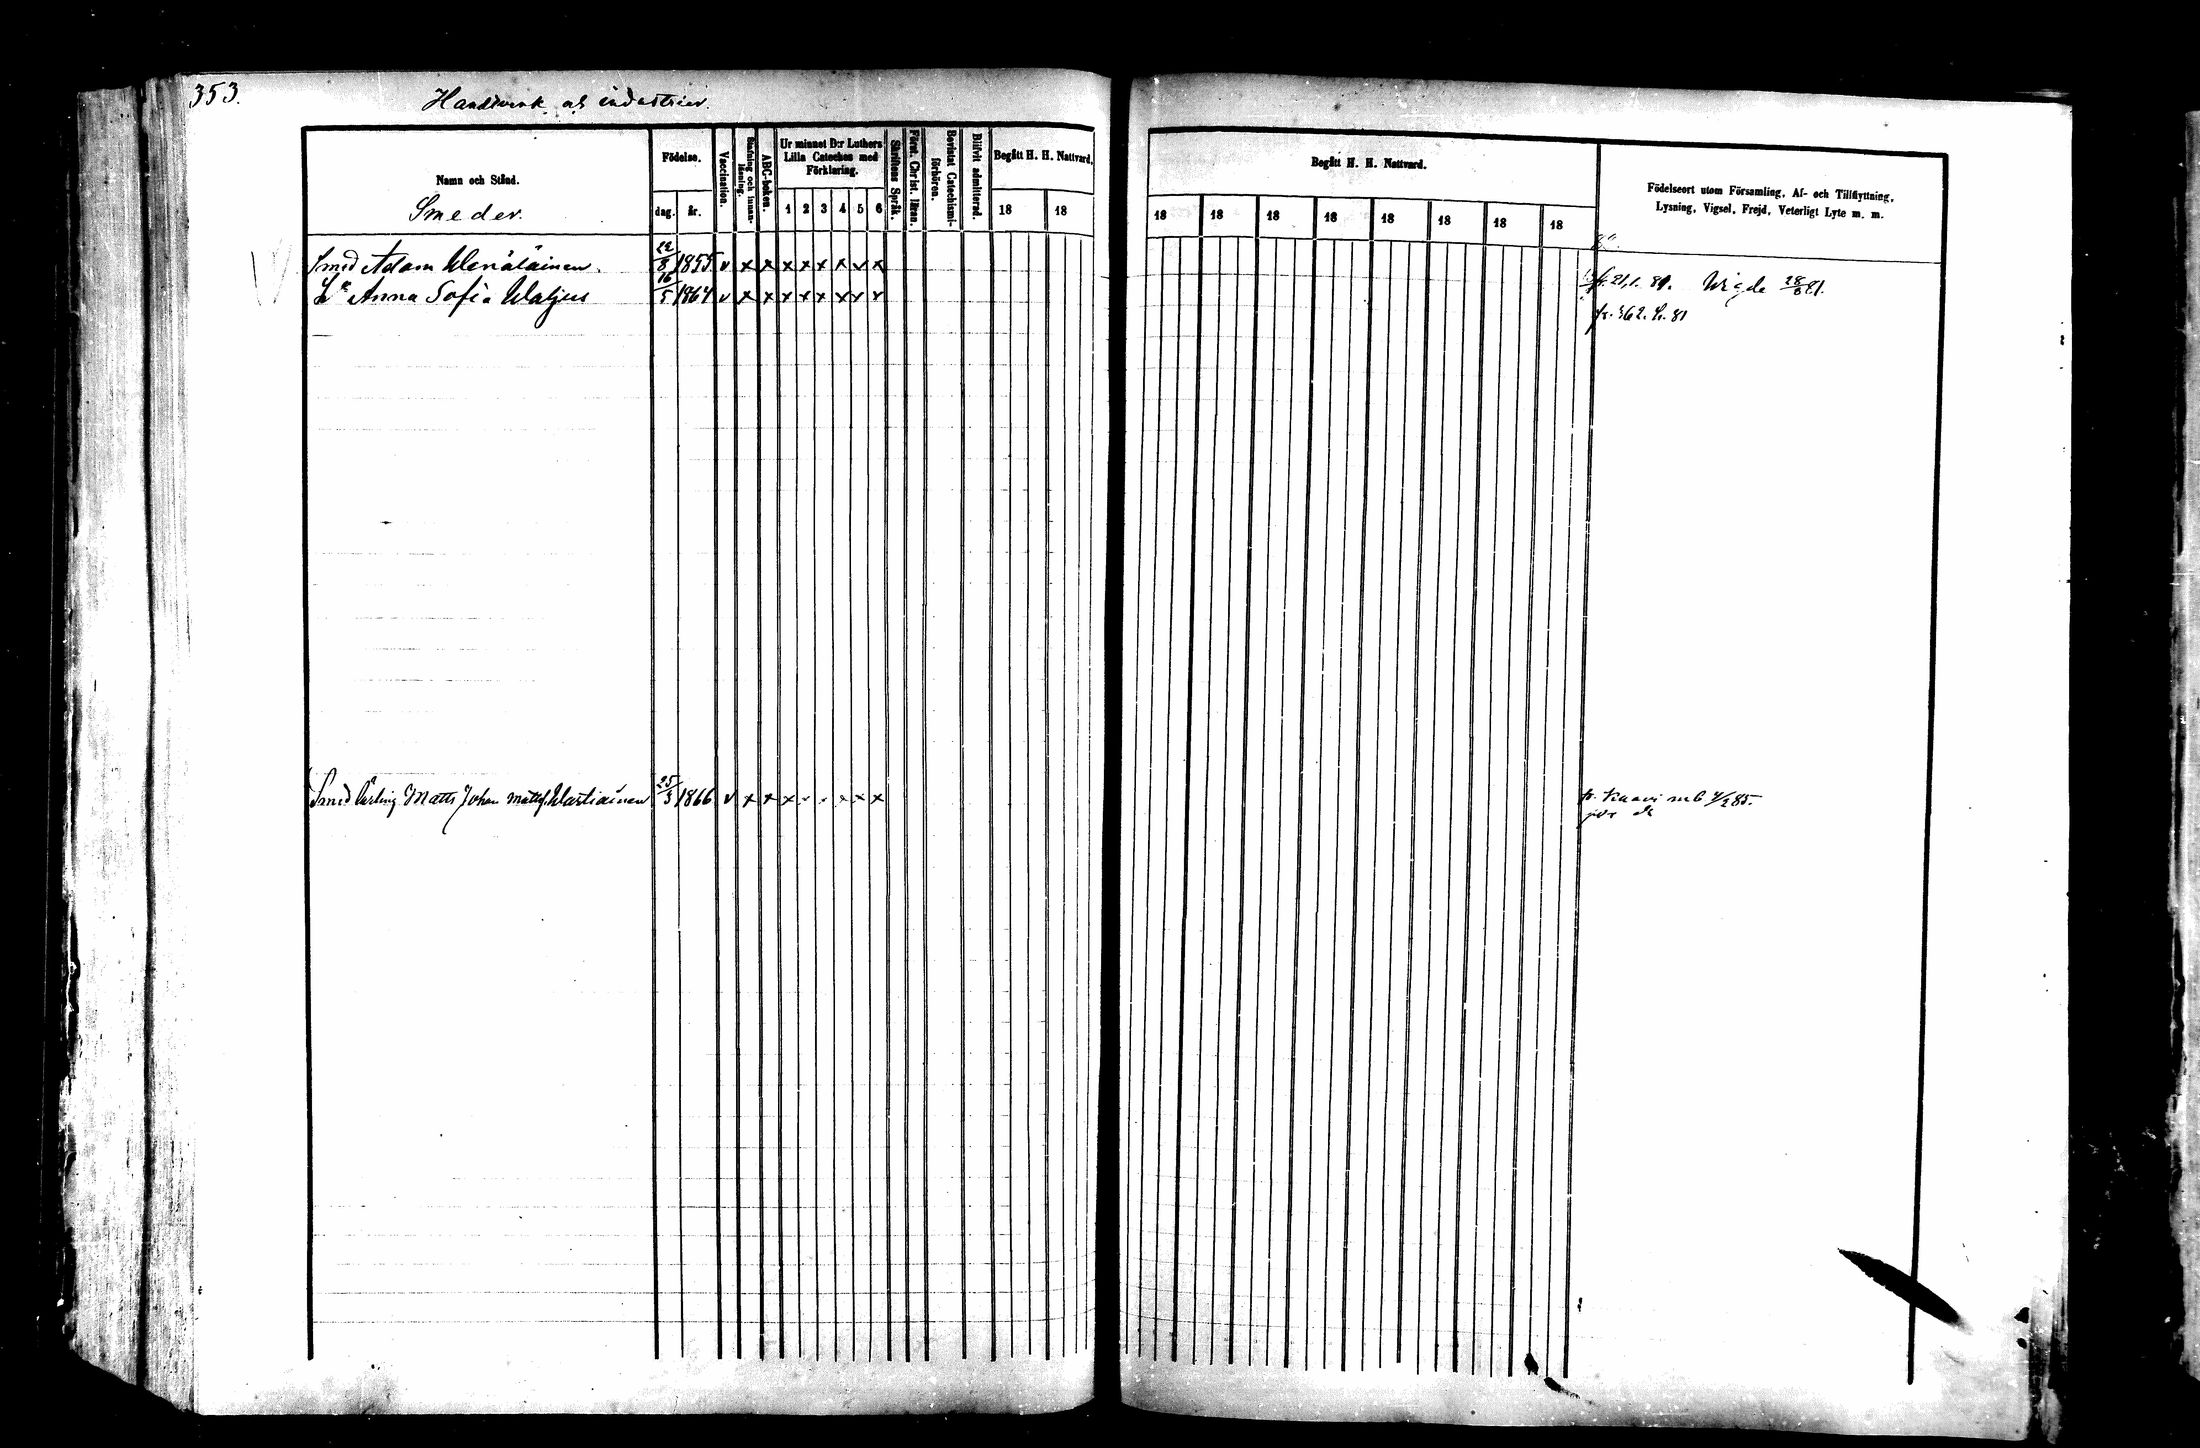 353.
Handtverk och industrier.
Namn och Stånd.
Smeder.
Födelse.
dag. år.
Vaccination.
Stafning och innanläsning.
ABC-boken.
Ur minnet D:r Luthers
Lilla Cateches med
Förklaring.
1 2 3 4 5 6
Skriftens Språk.
Först. Christ. läran.
Bevistat Catechismiförhören.
Blifvit admitterad.
Begått H. H. Nattvard.
18 18
Begått H. H. Nattvard.
18 18 18 18 18 18 18 18
Födelseort utom Församling, Af- och Tillflyttning,
Lysning, Vigsel, Frejd, Veterligt Lyte m. m.
Smed Adam Wenäläinen. 22/8 1855 v x x x x x x v x
fr. 21, 1. 81. Wigde 28/6 81.
H. Anna Sofia Waljus 16/5 1864 v x x x x x x x x
fr. 362. h. 81
Smed lärling Matts Johan Mattsf. Wartiainen 25/3 1866 v x x x x x x
fr. Kaavi m b 4/2 85.